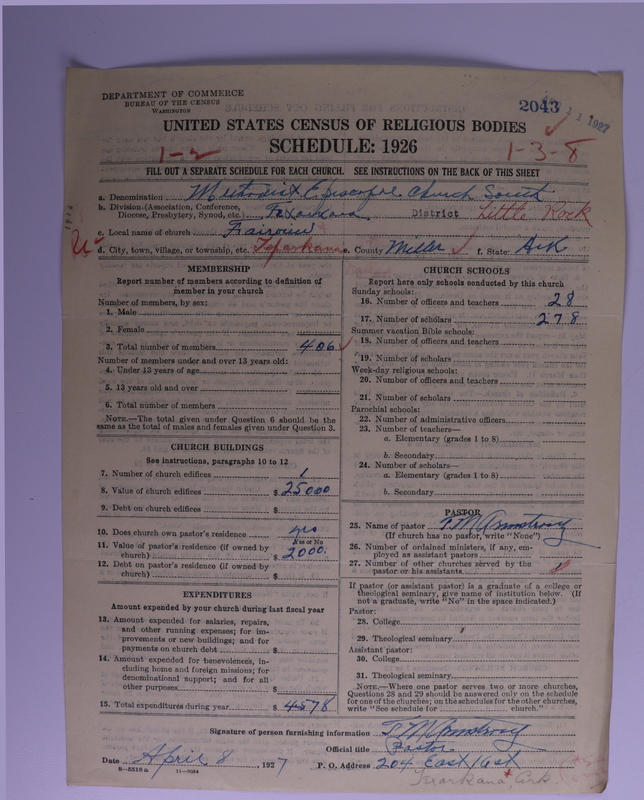 DEPARTMENT OF COMMERCE
BUREAU OF THE CENSUS
WASHINGTON
2043
11 1927
UNITED STATES CENSUS OF RELIGIOUS BODIES
SCHEDULE: 1926
1-2
1-3-8
FILL OUT A SEPARATE SCHEDULE FOR EACH CHURCH. SEE INSTRUCTIONS ON THE BACK OF THIS SHEET
a. Denomination Methodist Episcopal Church South
b. Division (Association, Conference, Diocese, Presbytery, Synod, etc.) Texarkana District Little Rock
c. Local name of church Fairview
d. City, town, village, or township, etc. Texarkana e. County Miller f. State Ark
MEMBERSHIP
Report number of members according to definition of
member in your church
Number of members, by sex:
1. Male
2. Female
3. Total number of members 406
Number of members under and over 13 years old:
4. Under 13 years of age
5. 13 years old and over
6. Total number of members
NOTE.—The total given under Question 6 should be
the same as the total of males and females given under Question 3.
CHURCH BUILDINGS
See instructions, paragraphs 10 to 12
7. Number of church edifices 1
8. Value of church edifices $ 25000
9. Debt on church edifices $
10. Does church own pastor's residence yes
Yes or No
11. Value of pastor's residence (if owned by
church) $ 2000.
12. Debt on pastor's residence (if owned by
church) $
EXPENDITURES
Amount expended by your church during last fiscal year
13. Amount expended for salaries, repairs,
and other running expenses; for im-
provements or new buildings; and for
payments on church debt $
14. Amount expended for benevolences, in-
cluding home and foreign missions; for
denominational support; and for all
other purposes $
15. Total expenditures during year $ 4578
CHURCH SCHOOLS
Report here only schools conducted by this church
Sunday schools:
16. Number of officers and teachers 28
17. Number of scholars 278
Summer vacation Bible schools:
18. Number of officers and teachers
19. Number of scholars
Week-day religious schools:
20. Number of officers and teachers
21. Number of scholars
Parochial schools:
22. Number of administrative officers
23. Number of teachers—
a. Elementary (grades 1 to 8)
b. Secondary
24. Number of scholars—
a. Elementary (grades 1 to 8)
b. Secondary
PASTOR
25. Name of pastor T. M. Armstrong
(If church has no pastor, write "None")
26. Number of ordained ministers, if any, em-
ployed as assistant pastors
27. Number of other churches served by the
pastor or his assistants
If pastor (or assistant pastor) is a graduate of a college or
theological seminary, give name of institution below. (If
not a graduate, write "No" in the space indicated.)
Pastor:
28. College
29. Theological seminary
Assistant pastor:
30. College
31. Theological seminary
NOTE.—Where one pastor serves two or more churches,
Questions 28 and 29 should be answered only on the schedule
for one of the churches; on the schedules for the other churches,
write "See schedule for church."
Signature of person furnishing information T. M. Armstrong
Official title Pastor
Date April 8, 1927 P. O. Address 204 East
8—5518a 11—9034
Texarkana, Ark.